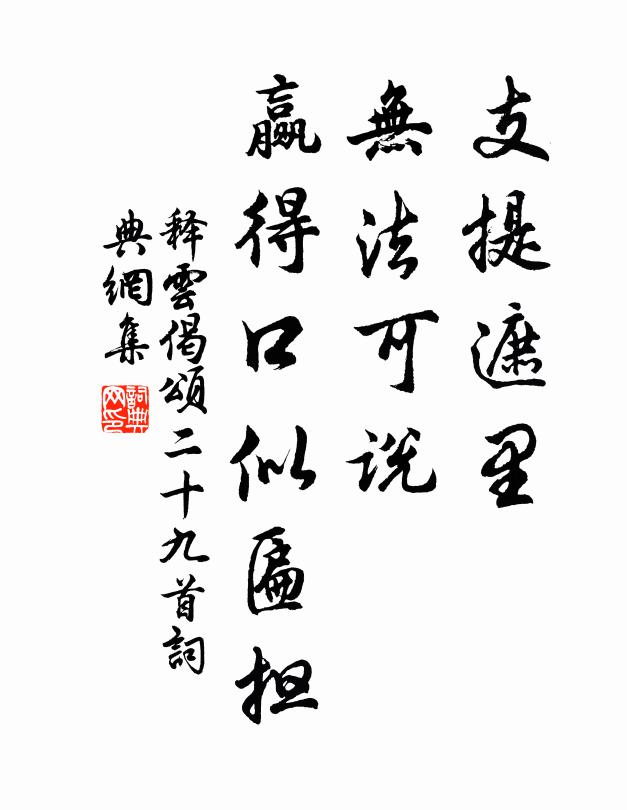 支提遮里
無法可説
贏得口似匾担
释雲偈頌二十九首詞
典網集
詞典网印